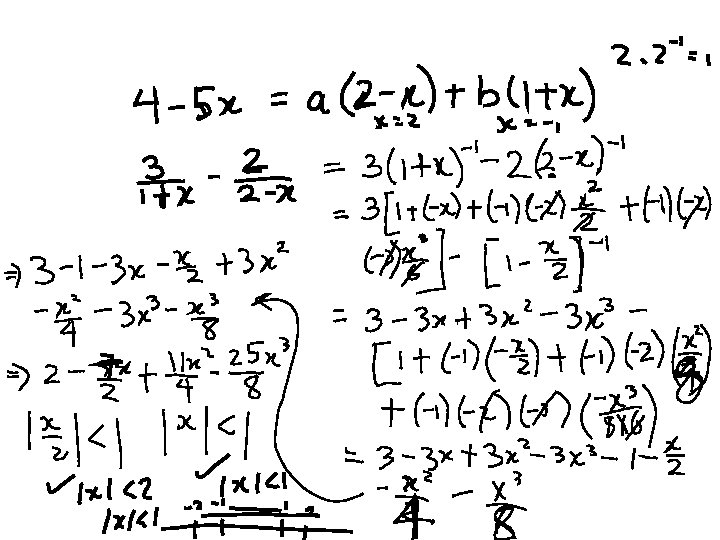 2.2⁻¹ = 1
4 - 5x = a(2-x) + b(1+x)
x=2 x=-1
3/(1+x) - 2/(2-x) = 3(1+x)⁻¹ - 2(2-x)⁻¹
= 3[1+(-x)+(-1)(-2)x²/2 + (-1)(-2)
(-3)x³/6] - [1 - x/2]⁻¹
= 3 - 3x + 3x² - 3x³ -
[1 + (-1)(-x/2) + (-1)(-2)(x²/8)
+ (-1)(-2)(-3)(-x³/8×6)
= 3 - 3x + 3x² - 3x³ - 1 - x/2
- x²/4 - x³/8
⇒ 3 - 1 - 3x - x/2 + 3x²
- x²/4 - 3x³ - x³/8
⇒ 2 - 7x/2 + 11x²/4 - 25x³/8
|x/2| < 1 |x| < 1
✓ |x| < 2 ✓ |x| < 1
|x| < 1 -2 -1 1 2